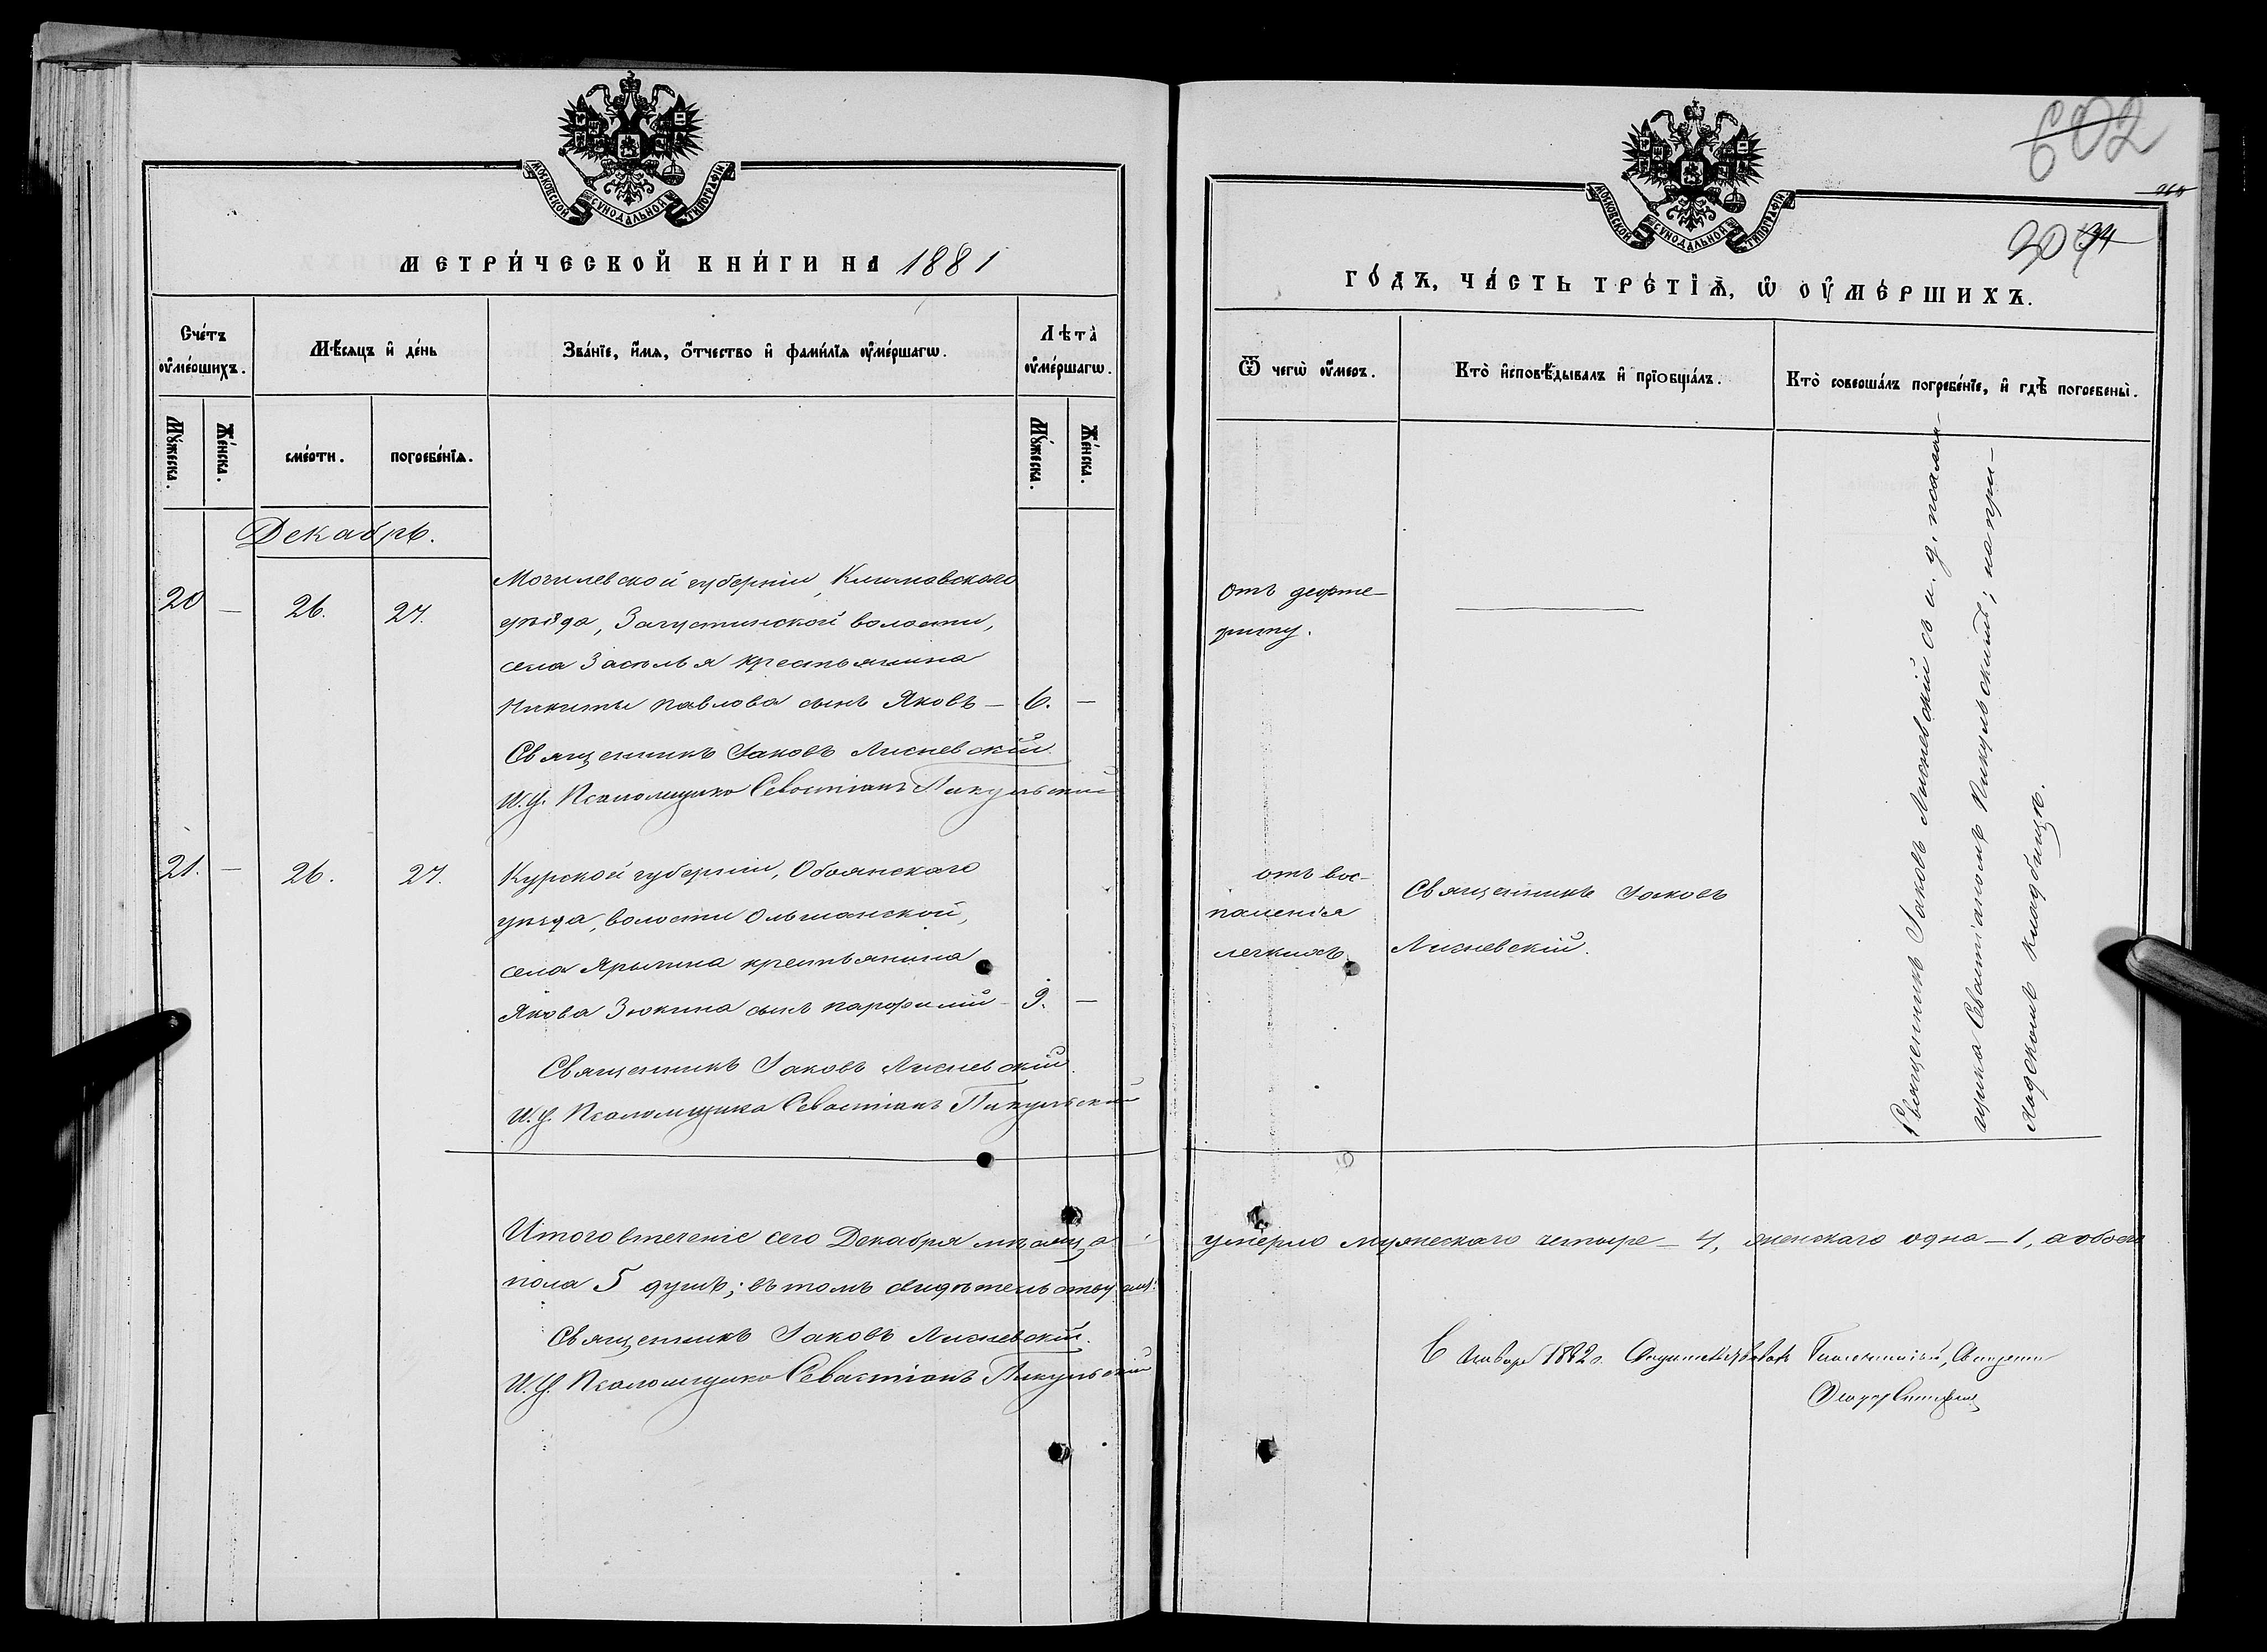 МОСКОВСКОЙ СѴНОДАЛЬНОЙ ТИПОГРАФІИ
МЕТРИ́ЧЕСКОЙ КНИ́ГИ НА 1881
Сче́тъ ᲂу҆ме́ршихъ.
Мѣ́сяцъ и҆ де́нь
Зва́нїе, и҆́мѧ, ѻ҆́тчество и҆ фами́лїѧ ᲂу҆ме́ршагѡ.
Лѣ́та ᲂу҆ме́ршагѡ.
Мꙋ́жеска.
Же́нска.
сме́рти.
погребе́нїѧ.
Мꙋ́жеска.
Же́нска.
Декабрь.
20 — 26. 27.
Могилевской губерніи, Климовскаго
уѣзда, Загустинской волости,
села Заполья крестьянина
Никиты Павлова сынъ Яковъ — 6. —
Священникъ Іаковъ Лисневскій
И. д. Псаломщика Севастіанъ Пикульскій
21. — 26. 27.
Курской губерніи, Обоянскаго
уѣзда, волости Ольшанской,
села Ярыгина крестьянина
Якова Зюкина сынъ Парфеній — 9. —
Священникъ Іаковъ Лисневскій
И. д. Псаломщика Севастіанъ Пикульскій
Итого втеченіе сего Декабря мѣсяца
пола 5 душъ; въ томъ свидѣтельствуемъ:
Священникъ Іаковъ Лисневскій.
И. д. Псаломщика Севастіанъ Пикульскій
602
МОСКОВСКОЙ СѴНОДАЛЬНОЙ ТИПОГРАФІИ
ГО́ДЪ, ЧА́СТЬ ТРЕ́ТЇѦ, Ѡ҆ ОУ҆МЕ́РШИХЪ.
Ѿ чегѡ̀ ᲂу҆́меръ.
Кто̀ и҆сповѣ́дывалъ и҆ прїобща́лъ.
Кто̀ соверша́лъ погребе́нїе, и҆ гдѣ̀ погребены̀.
отъ дефте-
риту.
отъ вос-
паленія
легкихъ
Священникъ Іаковъ
Лисневскій.
Священникъ Іаковъ Лисневскій съ и. д. псалом-
щика Севастіаномъ Пикульскимъ; на при-
ходскомъ кладбищѣ.
умерло мужескаго четыре — 4, женскаго одна — 1, а обоего
1882 г.